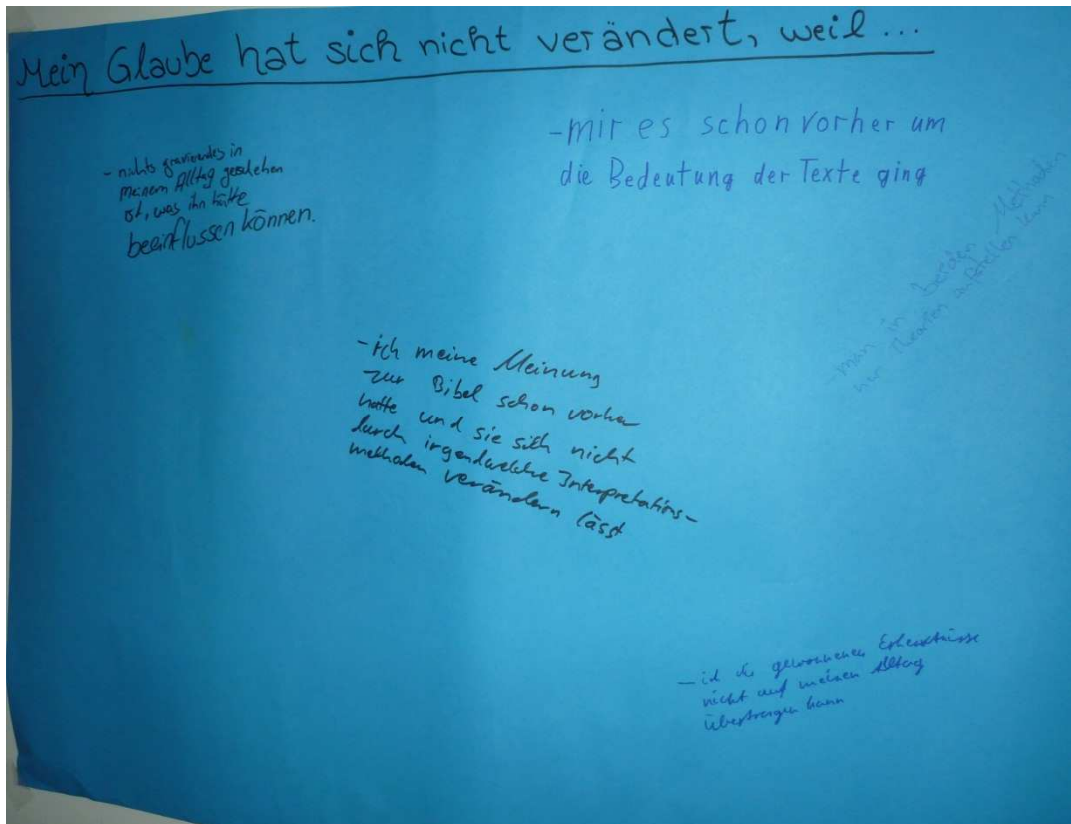 Mein Glaube hat sich nicht verändert, weil...
- nichts gravierendes in
meinem Alltag geschehen
ist, was ihn hätte
beeinflussen können.
- mir es schon vorher um
die Bedeutung der Texte ging
- man in beiden Methoden
nur Theorien aufstellen kann
- ich meine Meinung
zur Bibel schon vorher
hatte und sie sich nicht
durch irgendwelche Interpretations-
methoden verändern lässt
- ich die gewonnenen Erkenntnisse
nicht auf meinen Alltag
übertragen kann